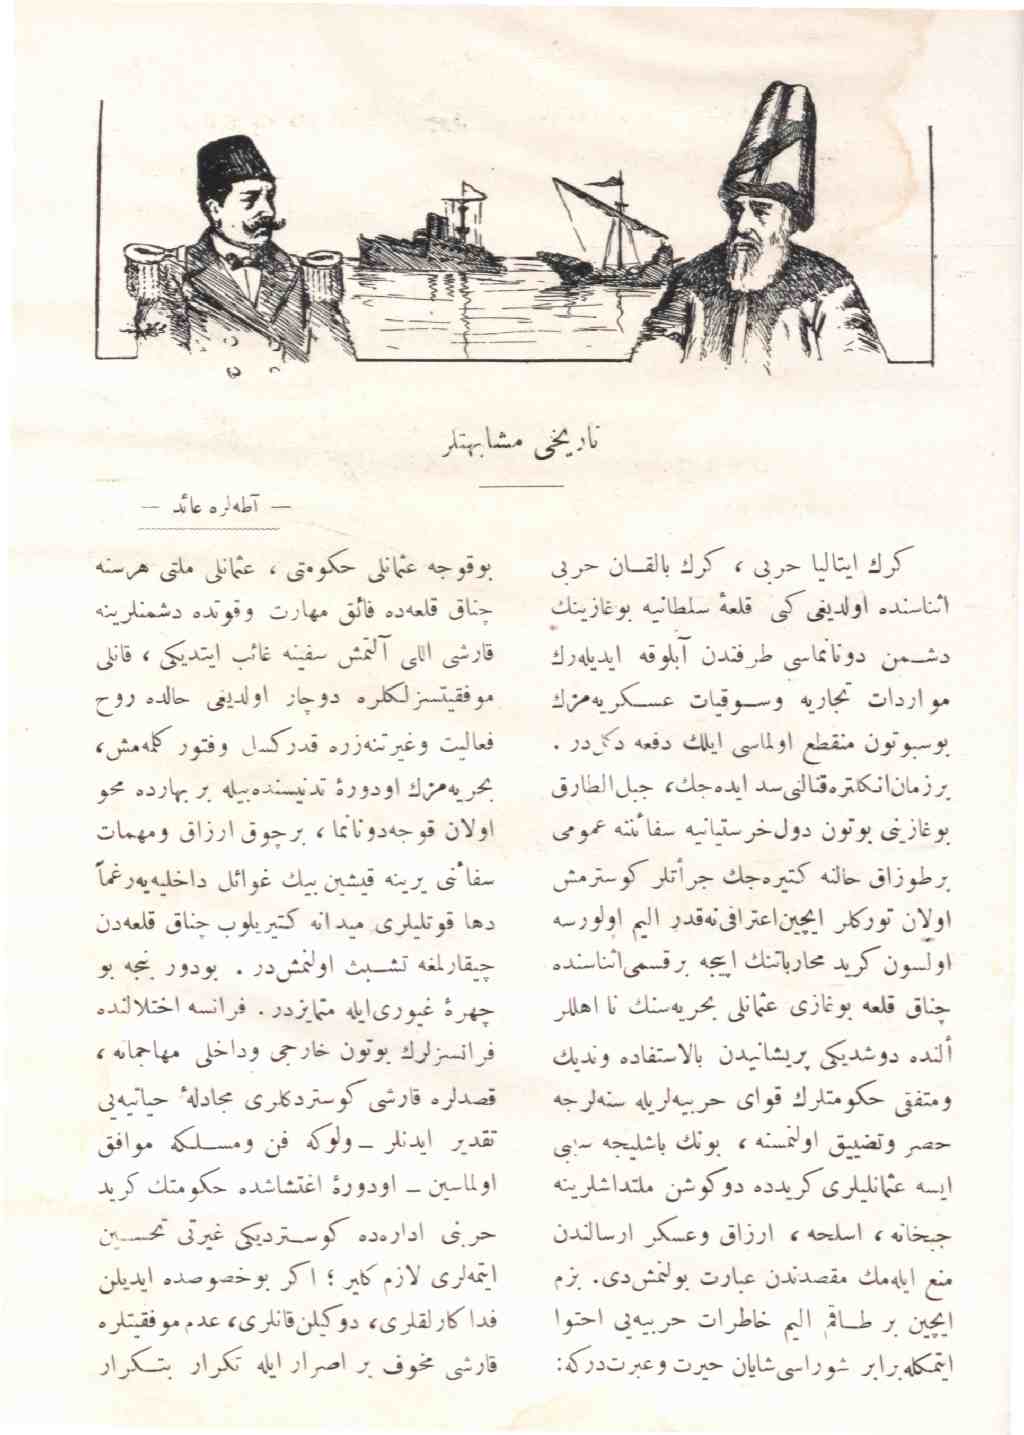 تاریخی مشابهتلر
— آطه‌لره عائد —
كرك ایتالیا حربی ، كرك بالقان حربی
اثناسنده اولدیغی كبی قلعهٔ سلطانیه بوغازینك
دشمن دونانماسی طرفندن آبلوقه ایدیله‌رك
مواردات تجاریه وسوقیات عسكریه‌مزك
بوسبوتون منقطع اولماسی ایلك دفعه دكل‌در .
برزمان انكلتره قنالنی سد ایده‌جك، جبل الطارق
بوغازینی بوتون دول خرستیانیه سفائننه عمومی
بر طوزاق حالنه كتیره‌جك جرأتلر كوسترمش
اولان توركلر ایچین اعترافی نه‌قدر الیم اولورسه
اولسون كرید محارباتنك اپیجه برقسمی اثناسنده
چناق قلعه بوغازی عثمانلی بحریه‌سنك نا اهللر
ألنده دوشدیكی پریشانیدن بالاستفاده وندیك
ومتفقی حكومتلرك قوای حربیه‌لریله سنه‌لرجه
حصر وتضییق اولنمسنه ، بونك باشلیجه سببی
ایسه عثمانلیلری كریدده دوكوشن ملتداشلرینه
جبخانه ، اسلحه ، ارزاق وعسكر ارسالندن
منع ایله‌مك مقصدندن عبارت بولنمش‌دی. بزم
ایچین بر طاقم الیم خاطرات حربیه‌یی احتوا
ایتمكله برابر شوراسی شایان حیرت وعبرت‌دركه:
بوقوجه عثمانلی حكومتی ، عثمانلی ملتی هرسنه
چناق قلعه‌ده فائق مهارت وقوتده دشمنلرینه
قارشی اللی آلتمش سفینه غائب ایتدیكی ، قانلی
موفقیتسزلكلره دوچار اولدیغی حالده روح
فعالیت وغیرتنه ذره قدر كسل وفتور كلمه‌مش،
بحریه‌مزك او دورهٔ تدنیسنده بیله بر بهارده محو
اولان قوجه دونانما ، برچوق ارزاق ومهمات
سفائنی یرینه قیشین بیك غوائل داخلیه‌یه رغماً
دها قوتلیلری میدانه كتیریلوب چناق قلعه‌دن
چیقارلمغه تشبث اولنمش‌در . بودور بنجه بو
چهرهٔ غیوری ایله متمایزدر. فرانسه اختلالنده
فرانسزلرك بوتون خارجی وداخلی مهاجمانه ،
قصدلره قارشی كوستردكلری مجادلهٔ حیاتیه‌یی
تقدیر ایدنلر ــ ولوكه فن ومسلكه موافق
اولماسین ــ اودورهٔ اغتشاشده حكومتك كرید
حربنی اداره‌ده كوستردیكی غیرتی تحسین
ایتمه‌لری لازم كلیر ؛ اكر بوخصوصده ایدیلن
فداكارلقلری، دوكیلن قانلری، عدم موفقیتلره
قارشی مخوف بر اصرار ایله تكرار بتكرار